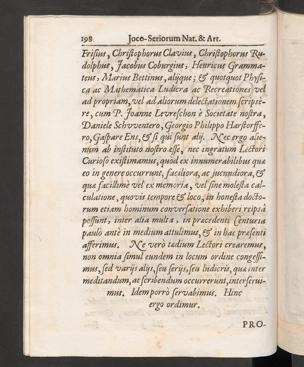 198 Joco-Seriorum Nat. & Art.
Frisius, Christophorus Clavius, Christophorus Ru-
dolphus, Jacobus Coburgius, Henricus Gramma-
teus, Marius Bettinus, aliique; & quotquot Physi-
ca ac Mathematica Ludicra ac Recreationes vel
ad propriam, vel ad aliorum delectationem scripse-
re, cum P. Joanne Levreschon è Societate nostra,
Daniele Schvventero, Georgio Philippo Harstorffe-
ro, Gaspare Ens, & si qui sunt alij. Nec ergo alie-
num ab instituto nostro esse, nec ingratum Lectori
Curioso existimamus, quòd ex innumerabilibus qua
eo in genere occurrunt, faciliora, ac jucundiora, &
qua facillimè vel ex memoria, vel sine molesta cal-
culatione, quovis tempore & loco, in honesta docto-
rum etiam hominum conversatione exhiberi reipsâ
possunt, inter alia multa, in præcedenti Centuria
paulò antè in medium attulimus, & in hac præsenti
afferimus. Ne verò tædium Lectori crearemus,
non omnia simul eundem in locum ordine congessi-
mus, sed varijs alijs, seu serijs, seu ludicris, qua inter
meditandum, ac scribendum occurrerunt, interserui-
mus. Idem porrò servabimus. Hinc
ergo ordimur.
PRO-